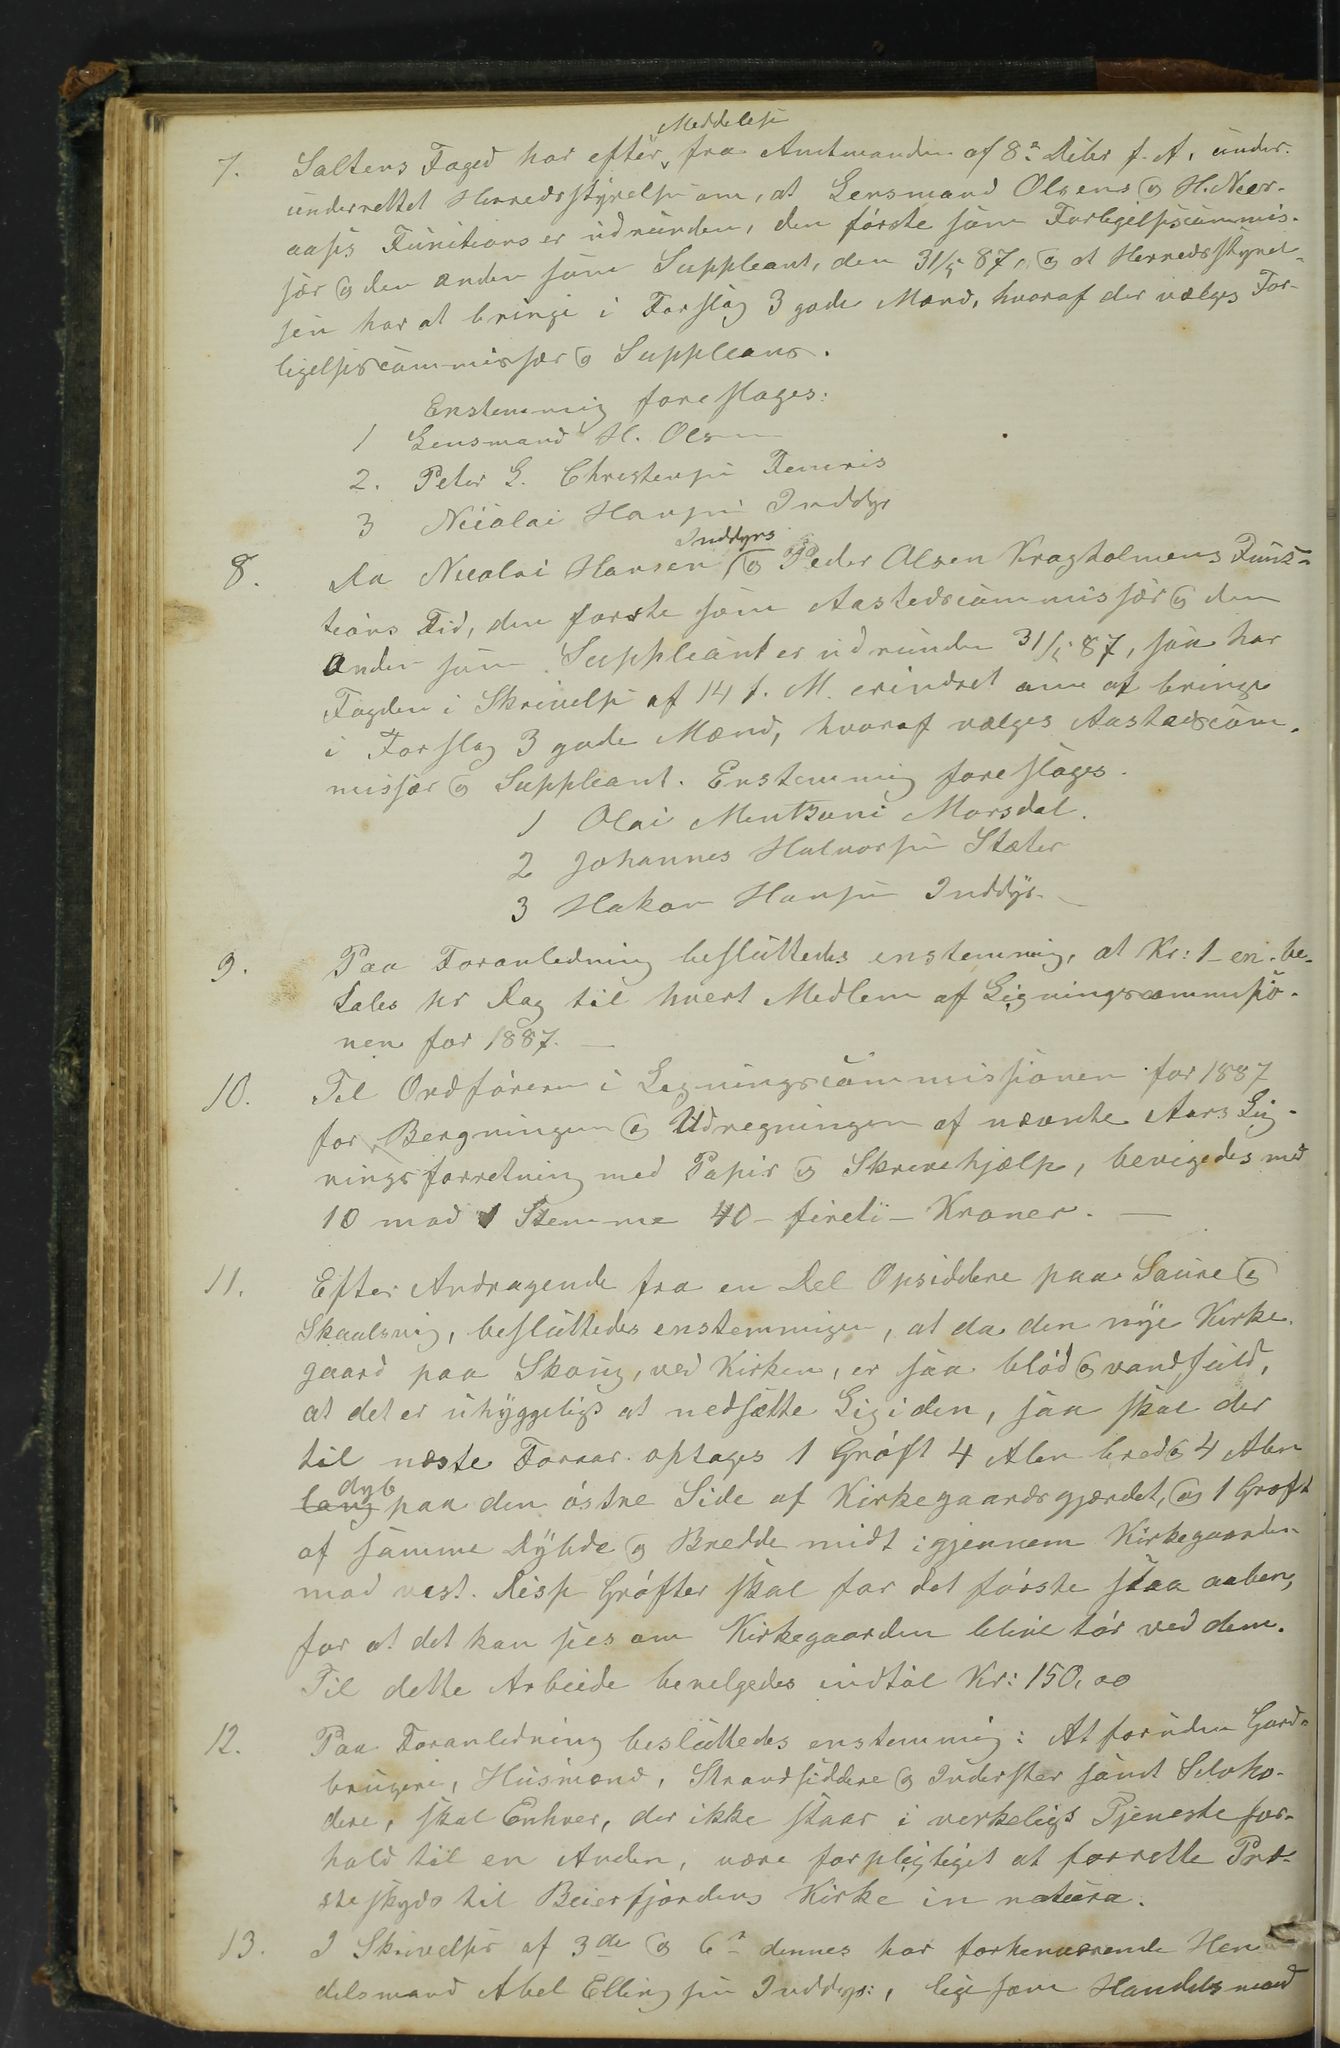 Meddelelse
7. Saltens Foged har efter fra Amtmanden af 8de Dcbr f. A. under-
underrettet Herredsstyrelsen om, at Lensmand Olsens og H. Neer-
aases Funktions er udrunden, den første som Forligelsescommis-
sær og den anden som Suppleant, den 31/5 87, og at Herredsstyrel-
sen har at bringe i Forslag 3 gode Mænd, hvoraf der vælges For-
ligelsescommissær og Suppleans.
Enstemmig foreslages:
1 Lensmand H. Olsen
2. Peter G. Christensen
3 Nicolai Hansen Inddyr
Inddyrs
8. Da Nicolai Hansen og Peder Olsen Kragholmens Funk-
tions Tid, den første som Aastedscommissær og den
anden som Suppleant er udrunden 31/5 87, saa har
Fogden i Skrivelse af 14 f. M. erindret om at bringe
i Forslag 3 gode Mænd, hvoraf vælges Aastedscom-
missær og Suppleant. Enstemmig foreslages.
1 Olai Mentzoni Morsdal.
2 Johannes Halvorsen Stæter
3 Hakon Hansen Inddyr. –
9. Paa Foranledning besluttedes enstemmig, at Kr: 1 – en - be-
tales pr Dag til hvert Medlem af Ligningscommisio-
nen for 1887. —
10. Til Ordføreren i Ligningscommissionen for 1887
for Bergningen og Udregningen af nævnte Aars Lig-
ningsforretning med Papir og Skrivehjælp, bevigedes med
10 mod 1 Stemme 40 – fireti – Kroner. —
11. Efter Andragende fra en Del Opsiddere paa Saure og
Skaalsvig, besluttedes enstemmigen, at da den nye Kirke-
gaard paa Skaug, ved Kirken, er saa blød og vandfuld,
at det er uhyggeligt at nedsætte Lig i den, saa skal der
til næste Foraar optages 1 Grøft 4 Alen bred og 4 Alen
dyb
lang paa den østre Side af Kirkegaardsgjærdet, og 1 Grøft
af samme Dybde og Bredde midt igjennem Kirkegaarden
mod vest. Disse Grøfter skal for det første staa aaben,
for at det kan sees om Kirkegaarden blive tør ved dem.
Til dette Arbeide bevelgedes indtil Kr: 150,00
12. Paa Foranledning besluttedes enstemmig: At foruden Gard-
brugere, Husmænd, Strandsiddere og Inderster samt Selvho-
dere, skal Enhver, der ikke staar i verkeligt Tjenestefor-
hold til en Anden, være forpligtiget at forrette Præ-
steskyds til Beierfjordens Kirke in natura.
13. I Skrivelser af 3de og 6te dennes har forhenværende Han-
delsmand Abel Ellingsen Inddyr:, ligesom Handelsmand